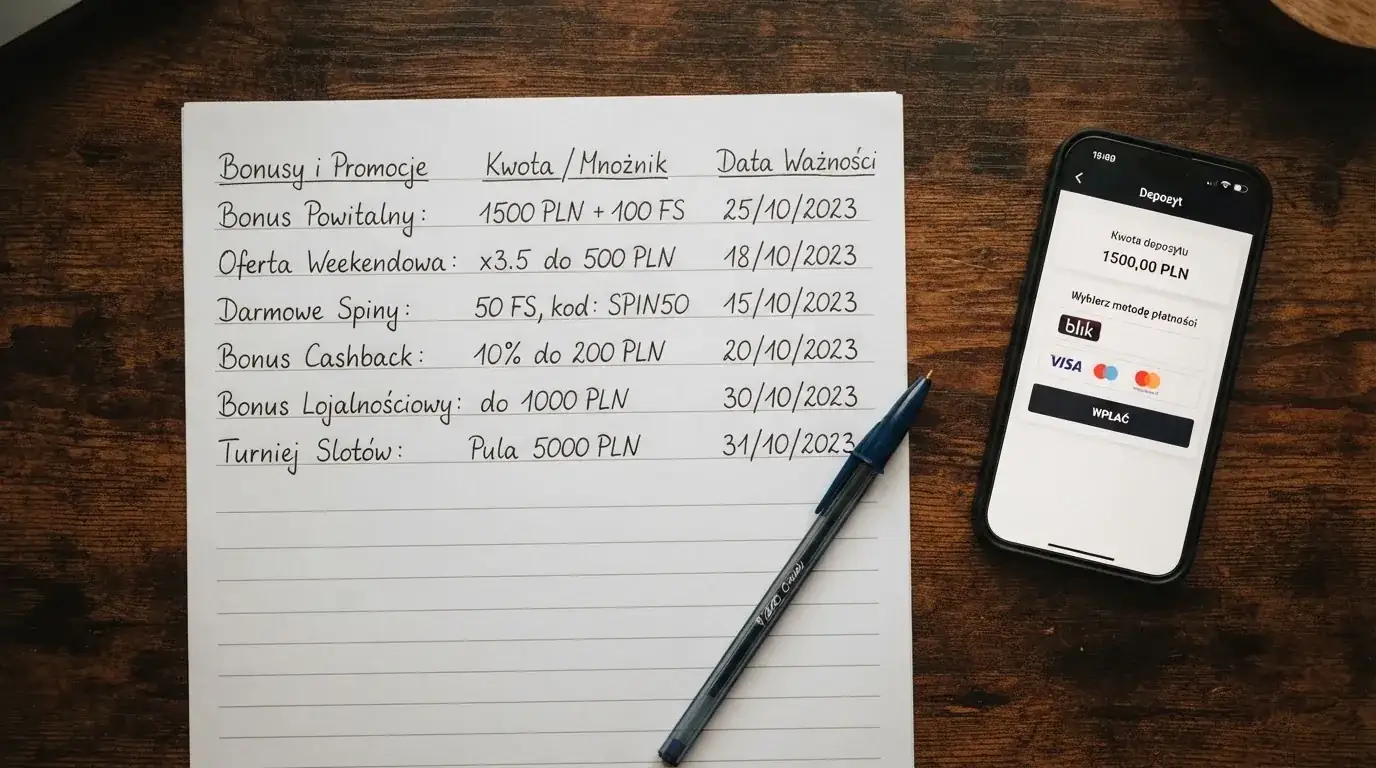 Bonusy i Promocje Kwota / Mnożnik Data Ważności
Bonus Powitalny: 1500 PLN + 100 FS 25/10/2023
Oferta Weekendowa: x3.5 do 500 PLN 18/10/2023
Darmowe Spiny: 50 FS, kod: SPIN50 15/10/2023
Bonus Cashback: 10% do 200 PLN 20/10/2023
Bonus Lojalnościowy: do 1000 PLN 30/10/2023
Turniej Slotów: Pula 5000 PLN 31/10/2023
Depozyt
Kwota depozytu
1500,00 PLN
Wybierz metodę płatności
blik
VISA
WPŁAĆ